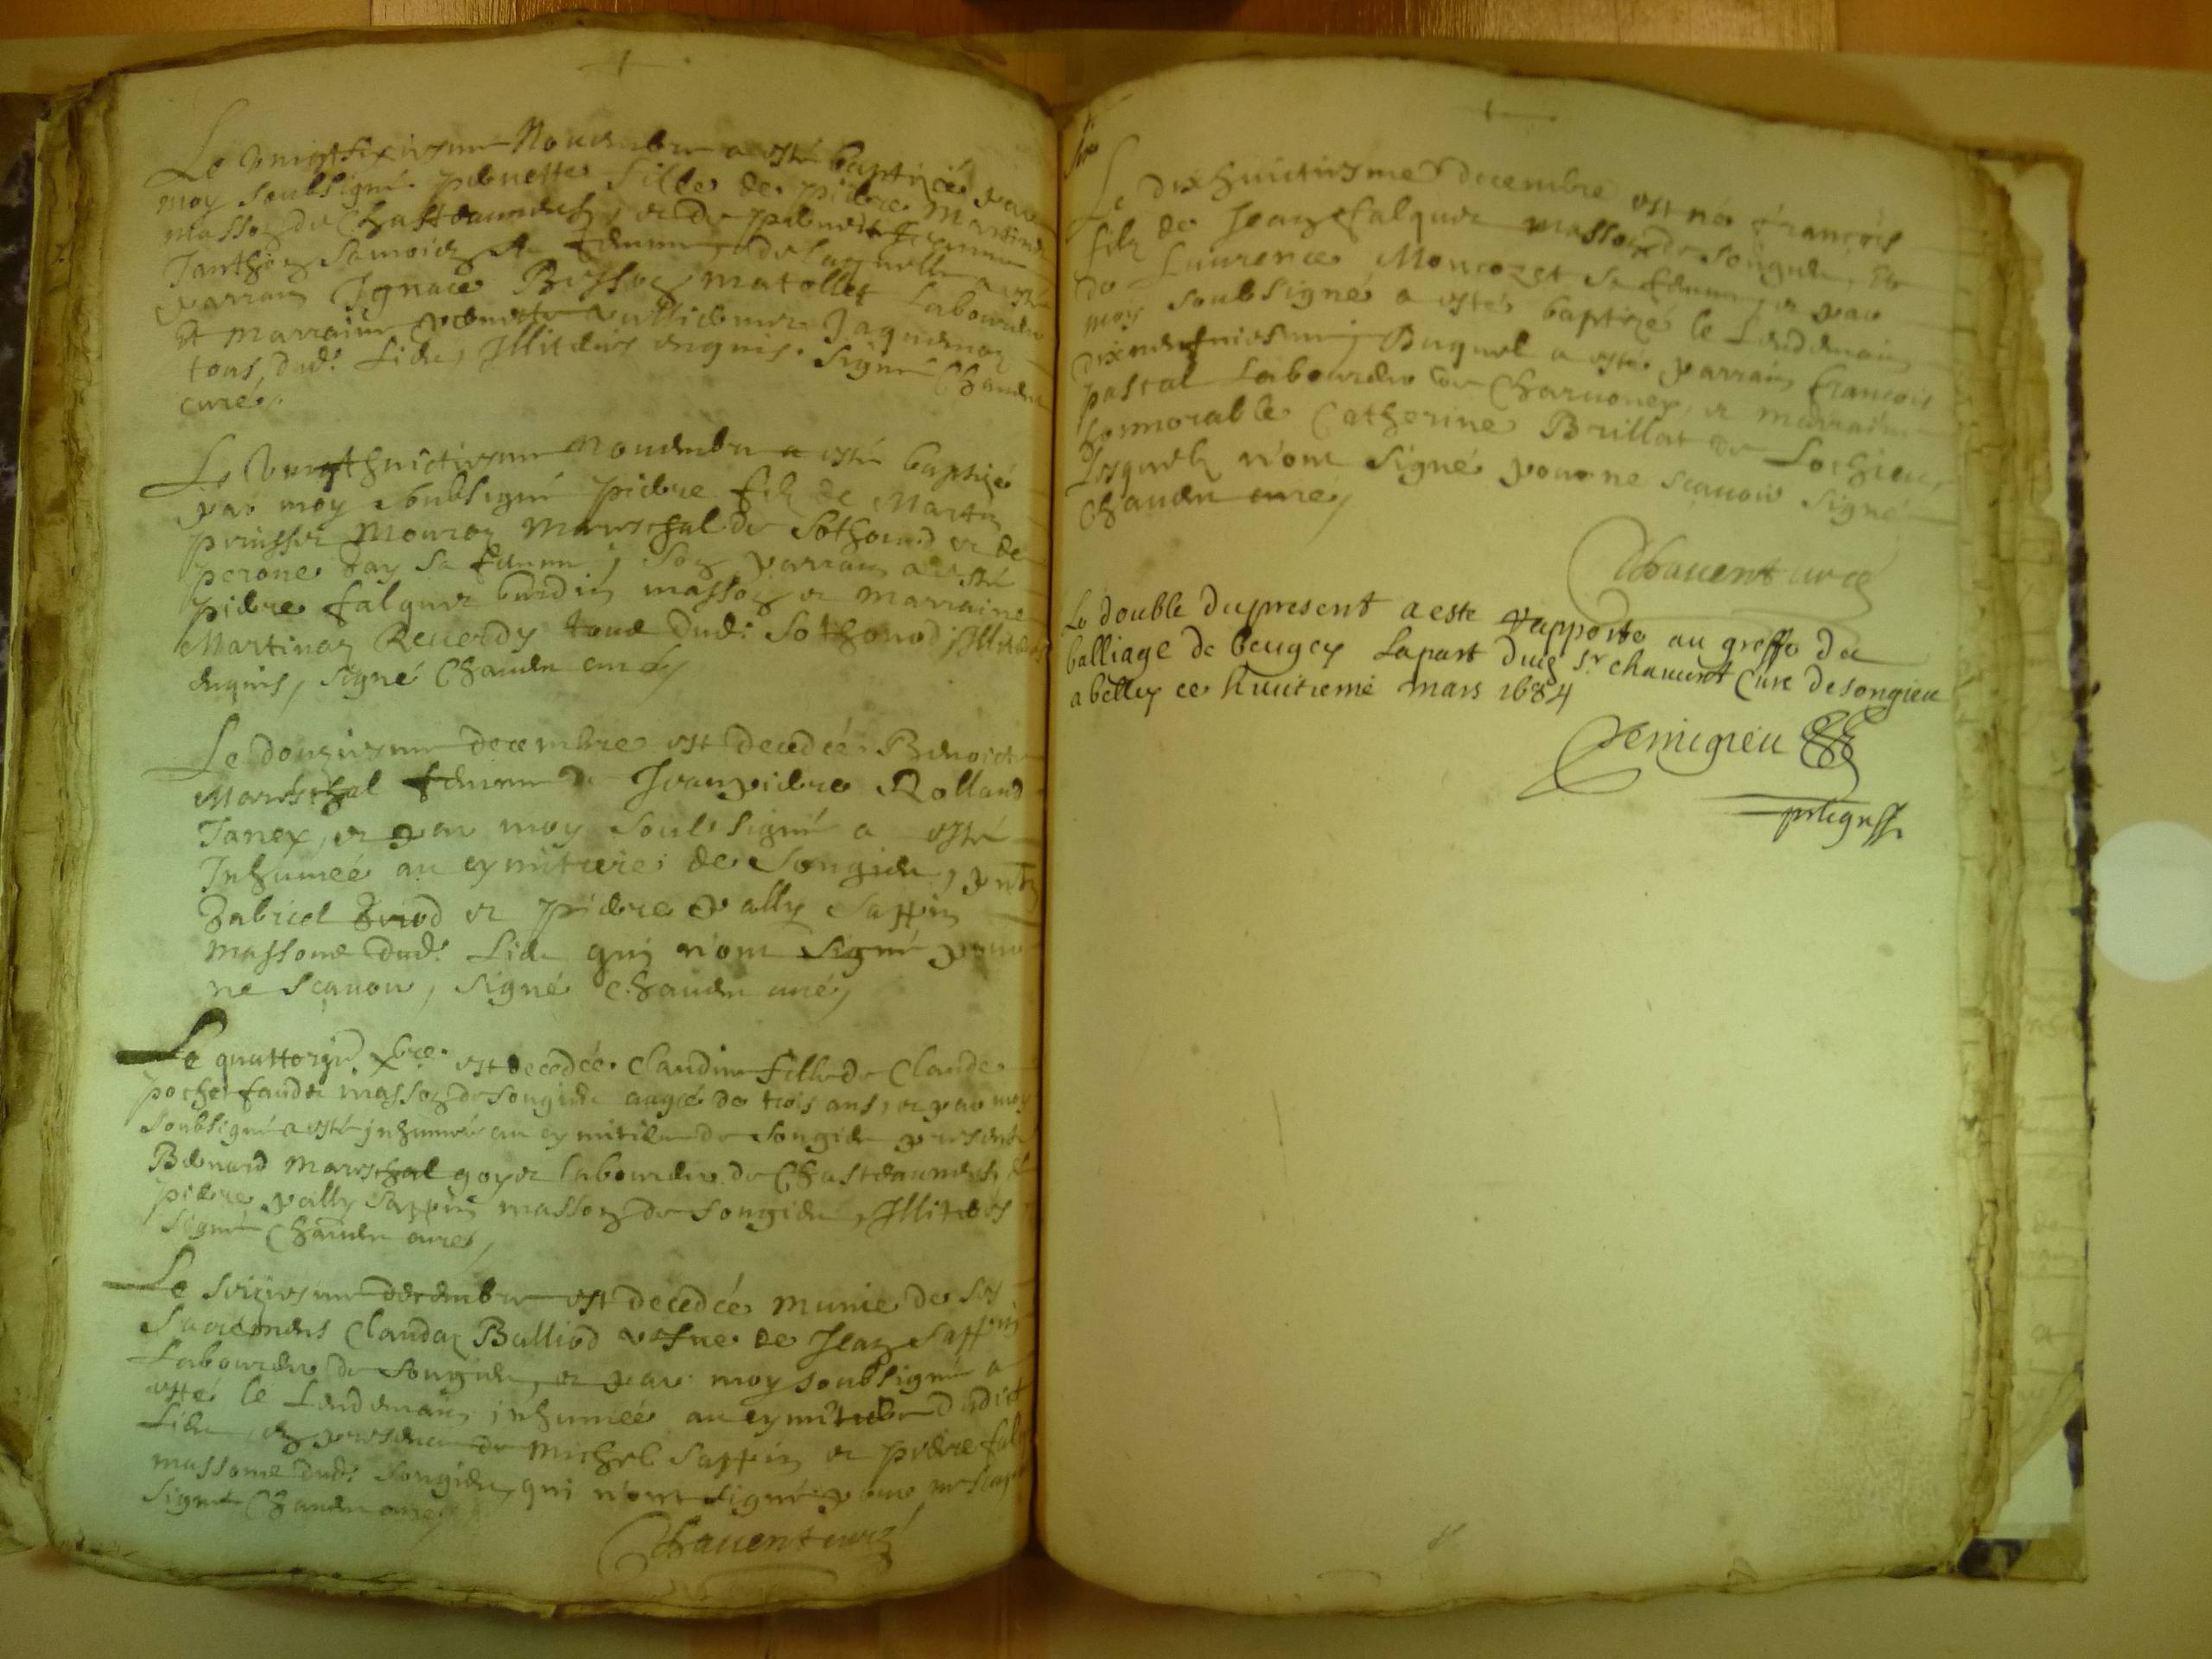 Le vingtsixiesme Novembre a esté baptizée par
moy soubsigné pernette fille de pierre Martinod
massoz de Chasteauneufz, et de pernette
sa femme, de laquelle a esté
parrain Ignace Byssoz matollet Laboureur
Et marraine pernette Jaquenoz
tous dud: Lieu, Illiteres enquis. signé Chavent
curé,
Le vingthuictiesme Novembre a esté baptizé
par moy soubsigné pierre filz de Martin
Mouroz Mareschal de Sothonod et de
perone Jay sa femme, Son parrain a esté
pierre falquet burdin massoz et Marraine
Martinaz Reverdy tous dud: Sothonod, Illiteres
enquis, signé Chavent curé,
Le douziesme decembre est decedée Benoicte
Mareschal femme de Jeanpierre Rolland
Janex, et par moy soubsigné a esté
Inhumeé au cymitiere de Songieu, pnts
Gabriel et pierre pally sappin
massons dud: Lieu qui n'ont signé pour
ne scavoir, signé Chavent curé,
Le quattorzie. xbre. est decedée Claudine fille de Claude
pochet massoz de Songieu aagée de trois ans, et par moy
soubsigné a esté inhumeé au cymitiere de Songieu presents
Bernard Mareschal goyet laboureur de Chasteauneufz, et
pierre pally sappin massoz de Songieu, Illiteres
signé Chavent curé,
Le seiziesme decembre est decedée munie de ses
Sacremens Claudaz Balliod vefve de Jean Sappin
Laboureur de Songieu, et par moy soubsigné a
esté le Lendemain inhumeé au cymitiere dudict
Lieu, en presence de Michel Sappin et pierre falq
massons dud: Songieu, qui n'ont signé pour ne scav
signé Chavent curé,
Chavent curé
Le dixhuictiesme decembre est né françois
filz de Jean falquet massoz de Songieu, Et
de Laurence Moncozet sa femme, et par
moy soubsigné a esté baptizé le Lendemain
dixneufviesme, Duquel a esté parrain françois
pastal Laboureur de Charvonex, et marraine
honnorable Catherine Brillat de Lochieu,
Lesquelz n'ont signé pour ne scavoir signé
Chavent curé,
Chavent curé
Le double du present a este rapporte au greffe du
balliage de beugey Lapart dud sr chavent Cure de songieu
a belley ce huitieme mars 1684
Demigieu